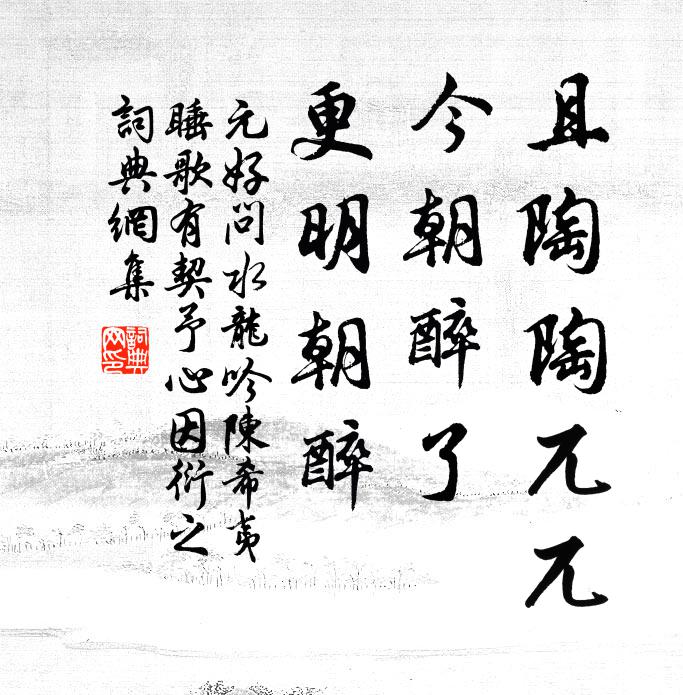 且陶陶兀兀
今朝醉了
更明朝醉
元好問水龍吟陳希夷
睡歌有契予心因衍之
詞典網集
詞典
网印